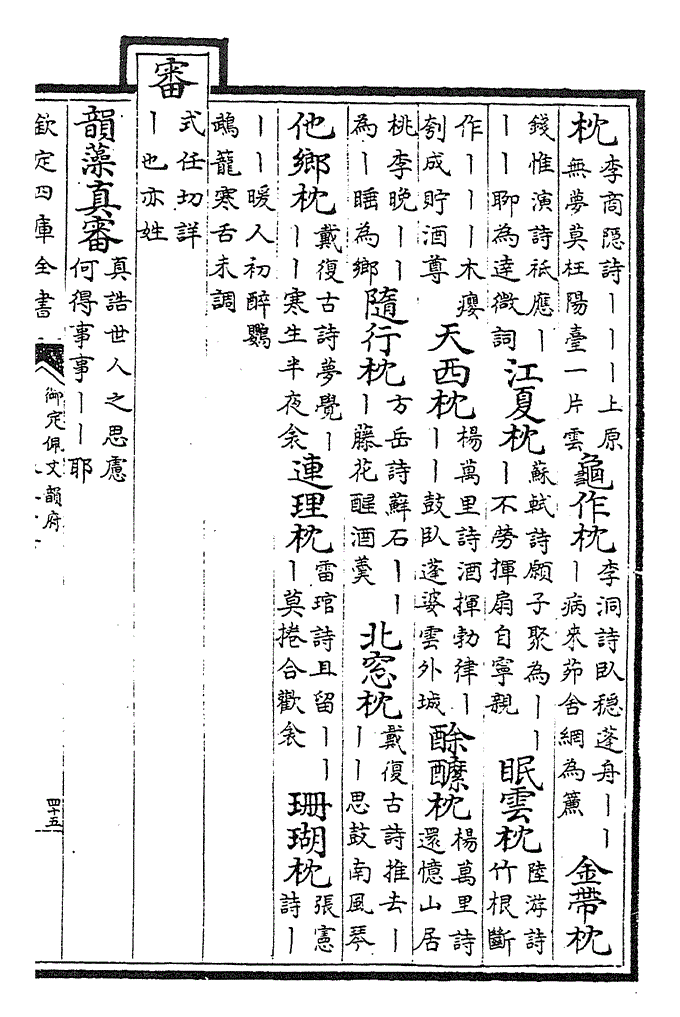 枕李商隠詩｜｜｜上原無夢莫枉陽臺一片雲龜作枕李洞詩臥穏蓬舟｜｜｜病來茆舍網為簾金帶枕
錢惟演詩祗應｜｜｜聊為達微詞江夏枕蘇軾詩願子聚為｜｜｜不勞揮扇自寧親眠雲枕陸游詩竹根斷
作｜｜｜木癭刳成貯酒尊天西枕楊萬里詩酒揮勃律｜｜｜鼓臥蓬婆雲外城酴醾枕楊萬里詩還憶山居
桃李晚｜｜為｜睡為鄉隨行枕方岳詩蘚石｜｜｜藤花醒酒羹北窓枕戴復古詩推去｜｜｜思鼓南風琴
他鄉枕戴復古詩夢覺｜｜｜寒生半夜衾連理枕雷琯詩且留｜｜｜莫捲合歡衾珊瑚枕張憲詩｜
｜｜暖人初醉鸚鵡籠寒舌未調
審式任切詳｜也亦姓
韻藻真審真誥世人之思慮何得事事｜｜耶
欽定四庫全書
御定佩文韻府
四十五